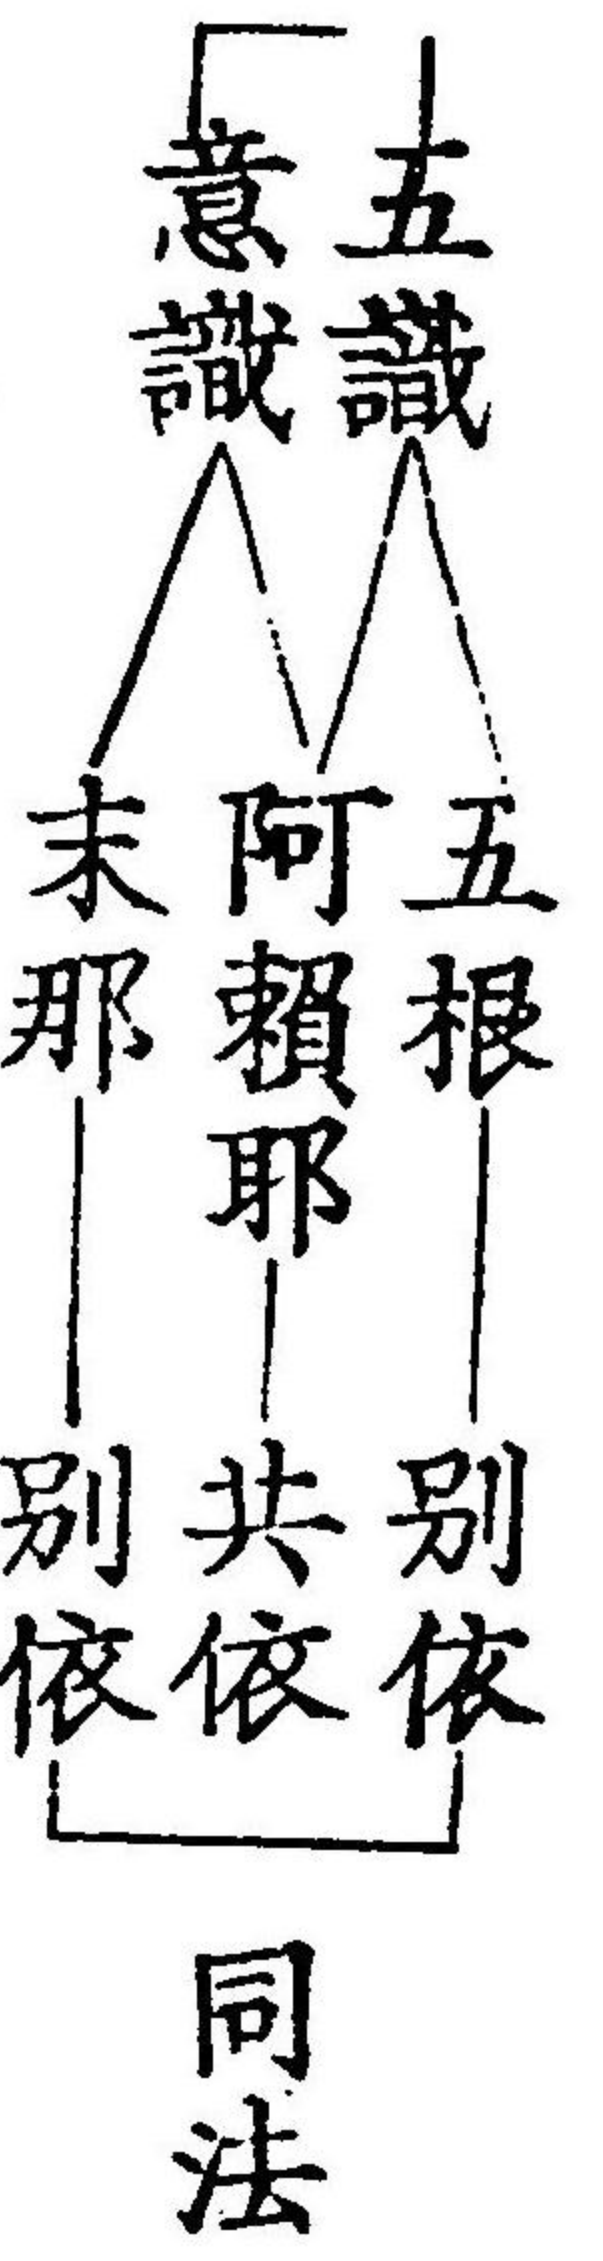 五識
意識
五根
阿賴耶
末那
別依
共依
別依
同法